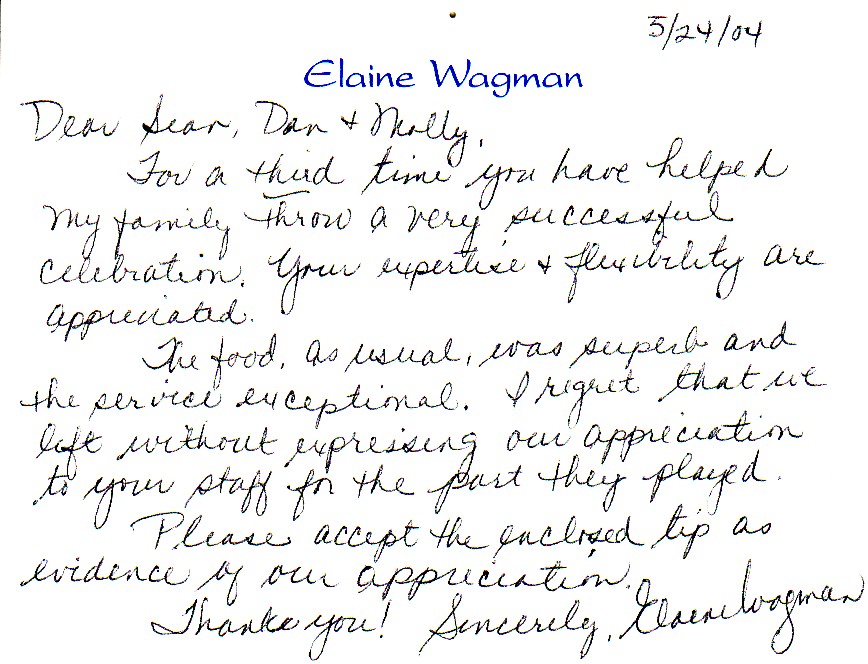 5/24/04
Elaine Wagman
Dear Sean, Dan + Molly,
For a third time you have helped
my family throw a very successful
celebration. Your expertise + flexibility are
appreciated.
The food, as usual, was superb and
the service exceptional. I regret that we
left without expressing our appreciation
to your staff for the part they played.
Please accept the enclosed tip as
evidence of our appreciation.
Thank you! Sincerely, Elaine Wagman